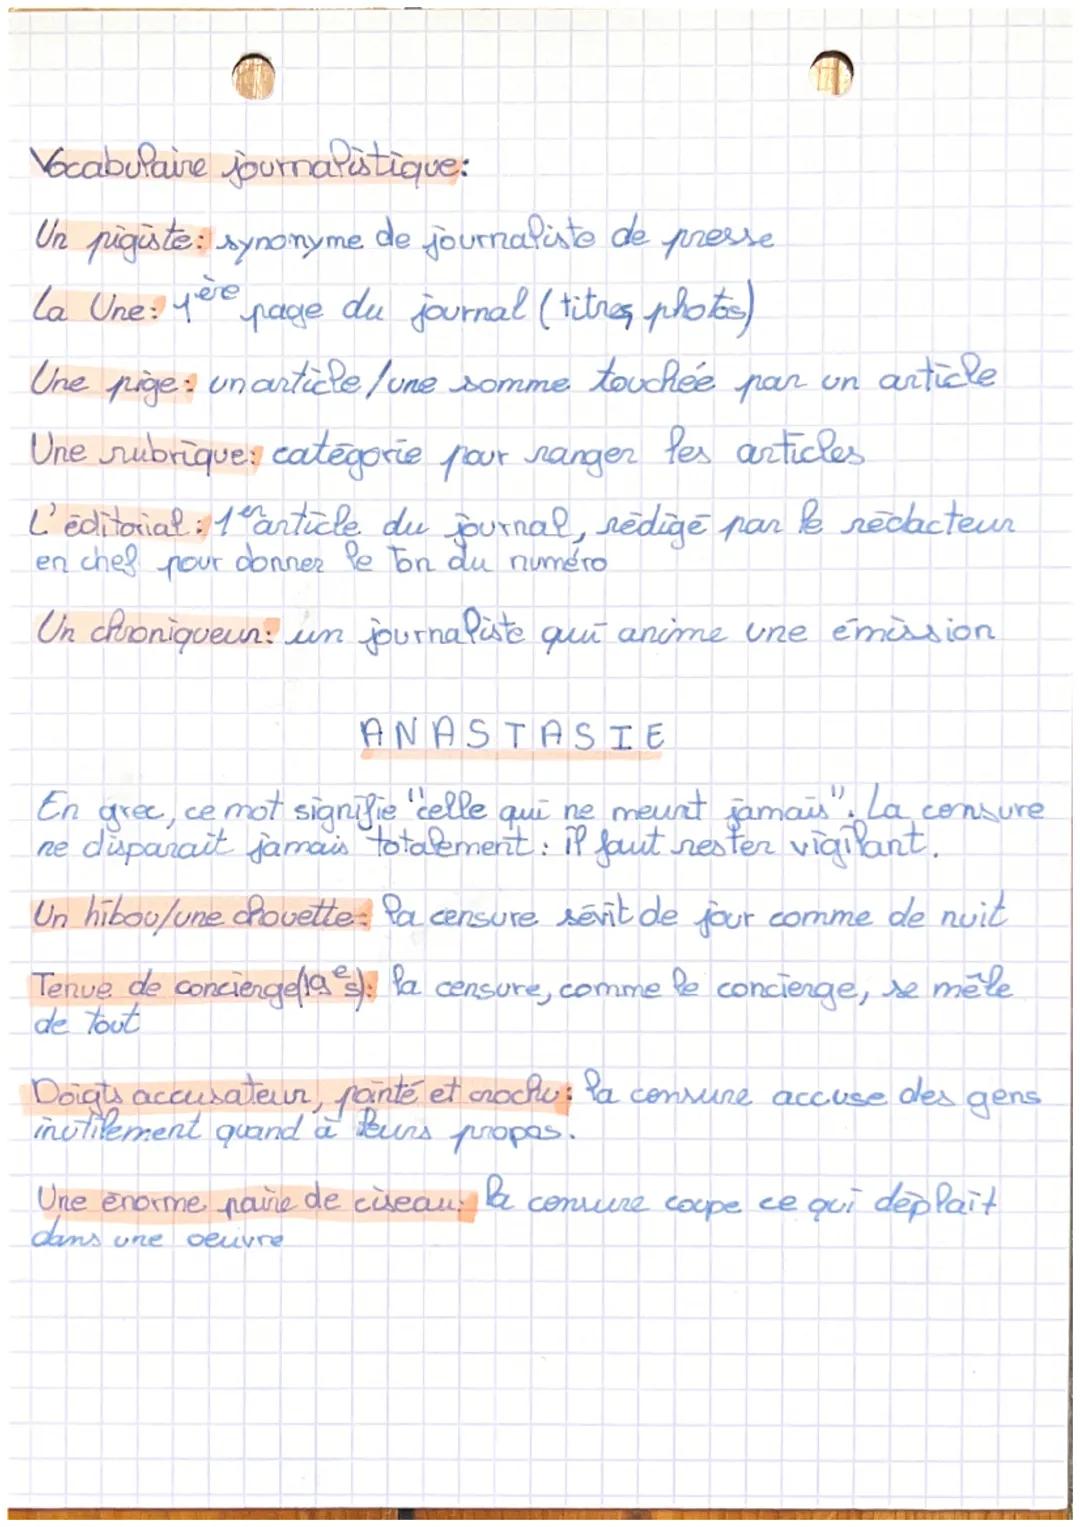 Vocabulaire journalistique:
Un pigiste: synonyme de journaliste de presse
La Une: 1ère page du journal (titres, photos)
Une pige: un article/une somme touchée par un article
Une rubrique: catégorie pour ranger les articles
L'éditorial: 1er article du journal, rédigé par le rédacteur
en chef pour donner le ton du numéro
Un chroniqueur: un journaliste qui anime une émission
ANASTASIE
En grec, ce mot signifie "celle qui ne meurt jamais". La censure
ne disparait jamais totalement: il faut rester vigilant.
Un hibou/une chouette: la censure sévit de jour comme de nuit
Tenue de concierge(19e s): la censure, comme le concierge, se mêle
de tout
Doigts accusateur, pointé et crochu: la censure accuse des gens
inutilement quand à leurs propos.
Une énorme paire de ciseau: la censure coupe ce qui déplait
dans une oeuvre